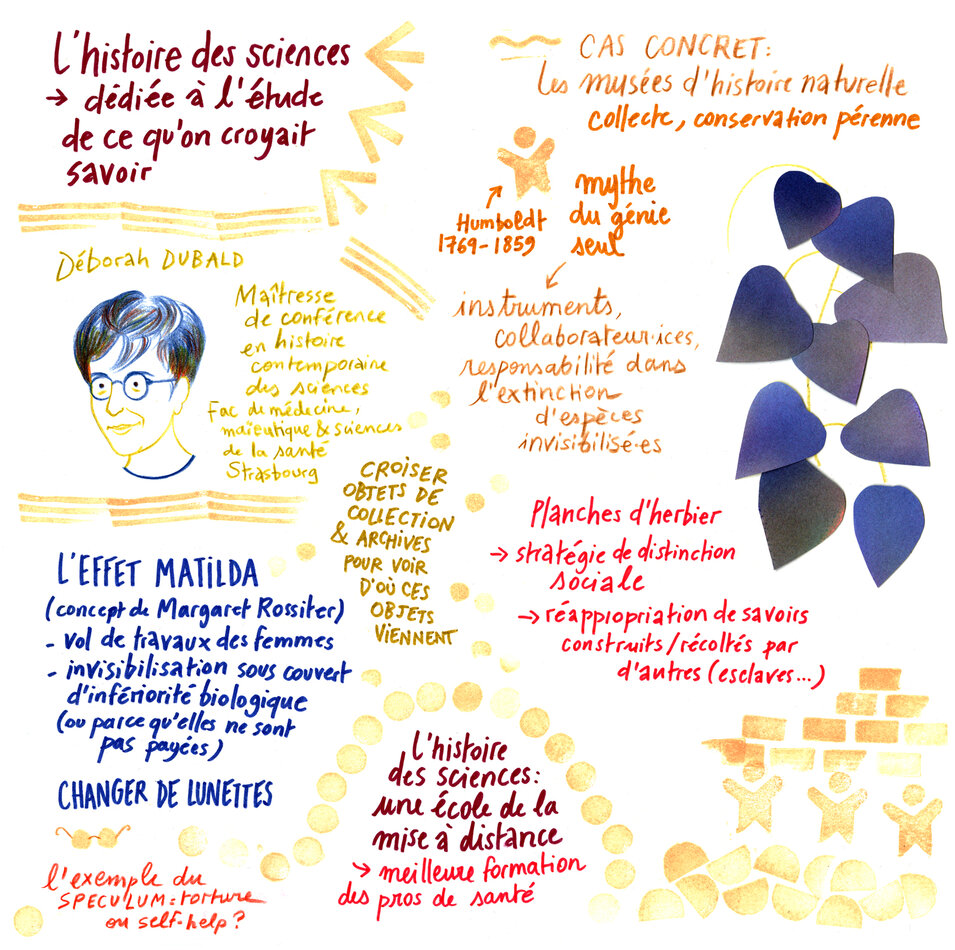 L'histoire des sciences
→ dédiée à l'étude
de ce qu'on croyait
savoir
Déborah DUBALD
Maîtresse
de conférence
en histoire
contemporaine
des sciences
Fac de médecine,
maïeutique & sciences
de la santé
Strasbourg
CROISER
OBJETS DE
COLLECTION
& ARCHIVES
POUR VOIR
D'OÙ CES
OBJETS
VIENNENT
L'EFFET MATILDA
(concept de Margaret Rossiter)
- vol de travaux des femmes
- invisibilisation sous couvert
d'infériorité biologique
(ou parce qu'elles ne sont
pas payées)
CHANGER DE LUNETTES
l'exemple du
SPECULUM : torture
ou self-help ?
CAS CONCRET :
les musées d'histoire naturelle
collecte, conservation pérenne
Humboldt
1769-1859
mythe
du génie
seul
instruments,
collaborateur·ices,
responsabilité dans
l'extinction
d'espèces
invisibilisé·es
Planches d'herbier
→ stratégie de distinction
sociale
→ réappropriation de savoirs
construits/récoltés par
d'autres (esclaves...)
L'histoire
des sciences :
une école de la
mise à distance
→ meilleure formation
des pros de santé